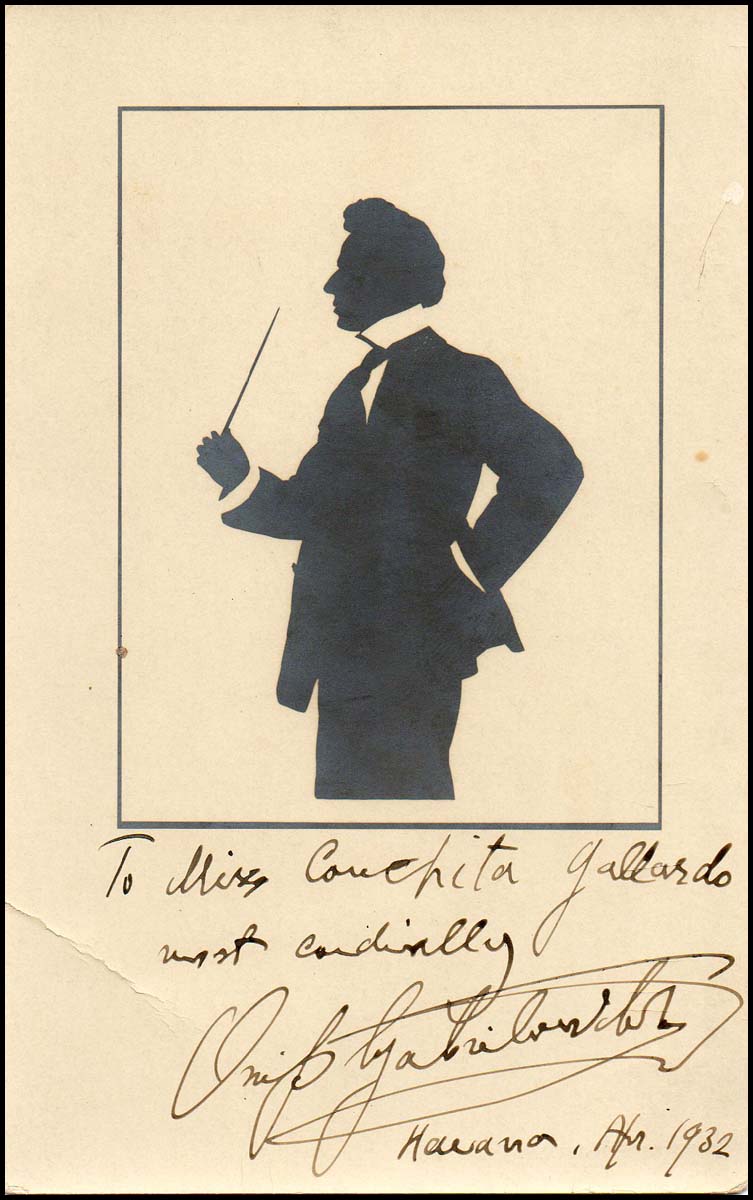 To Miss Conchita Gallardo
most cordially
Ossip Gabrilowitsch
Havana, Apr. 1932